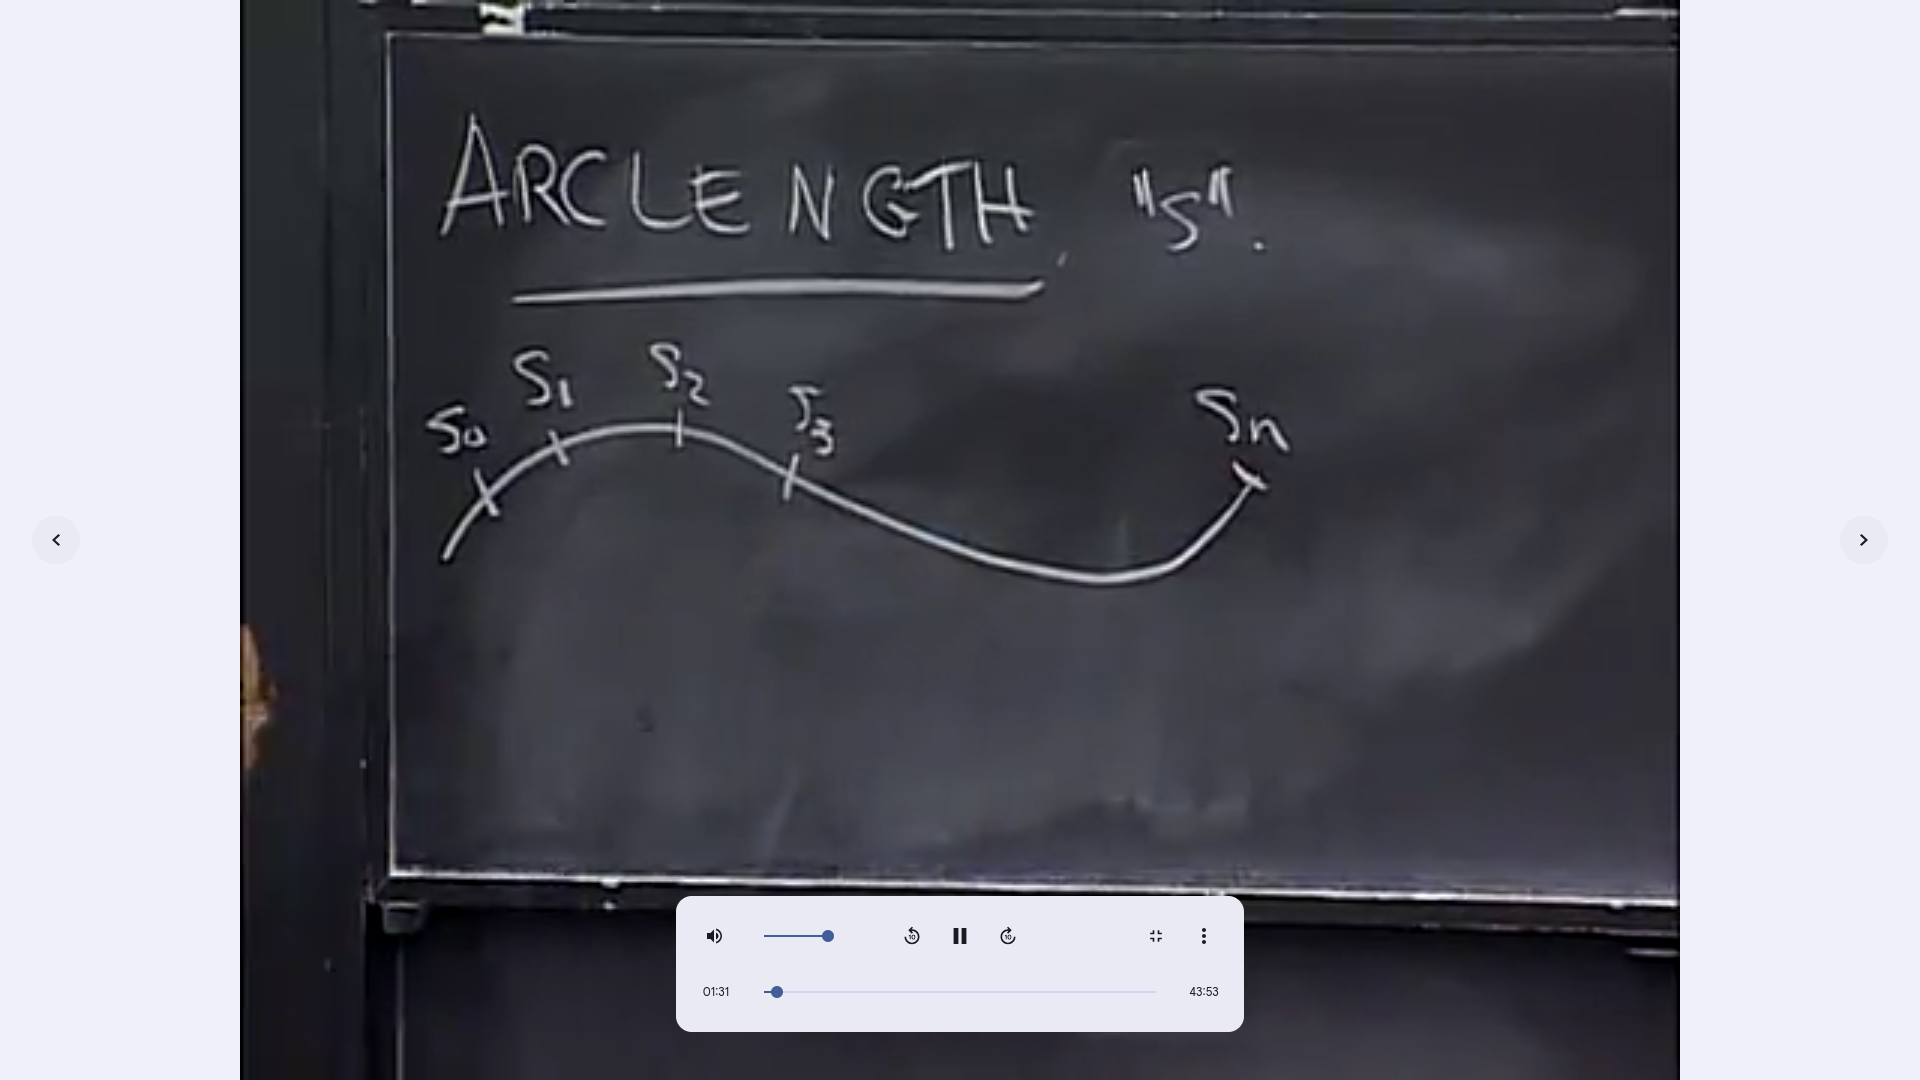 ARCLENGTH, "S".
S0 S1 S2 S3 Sn
10 10
01:31 43:53